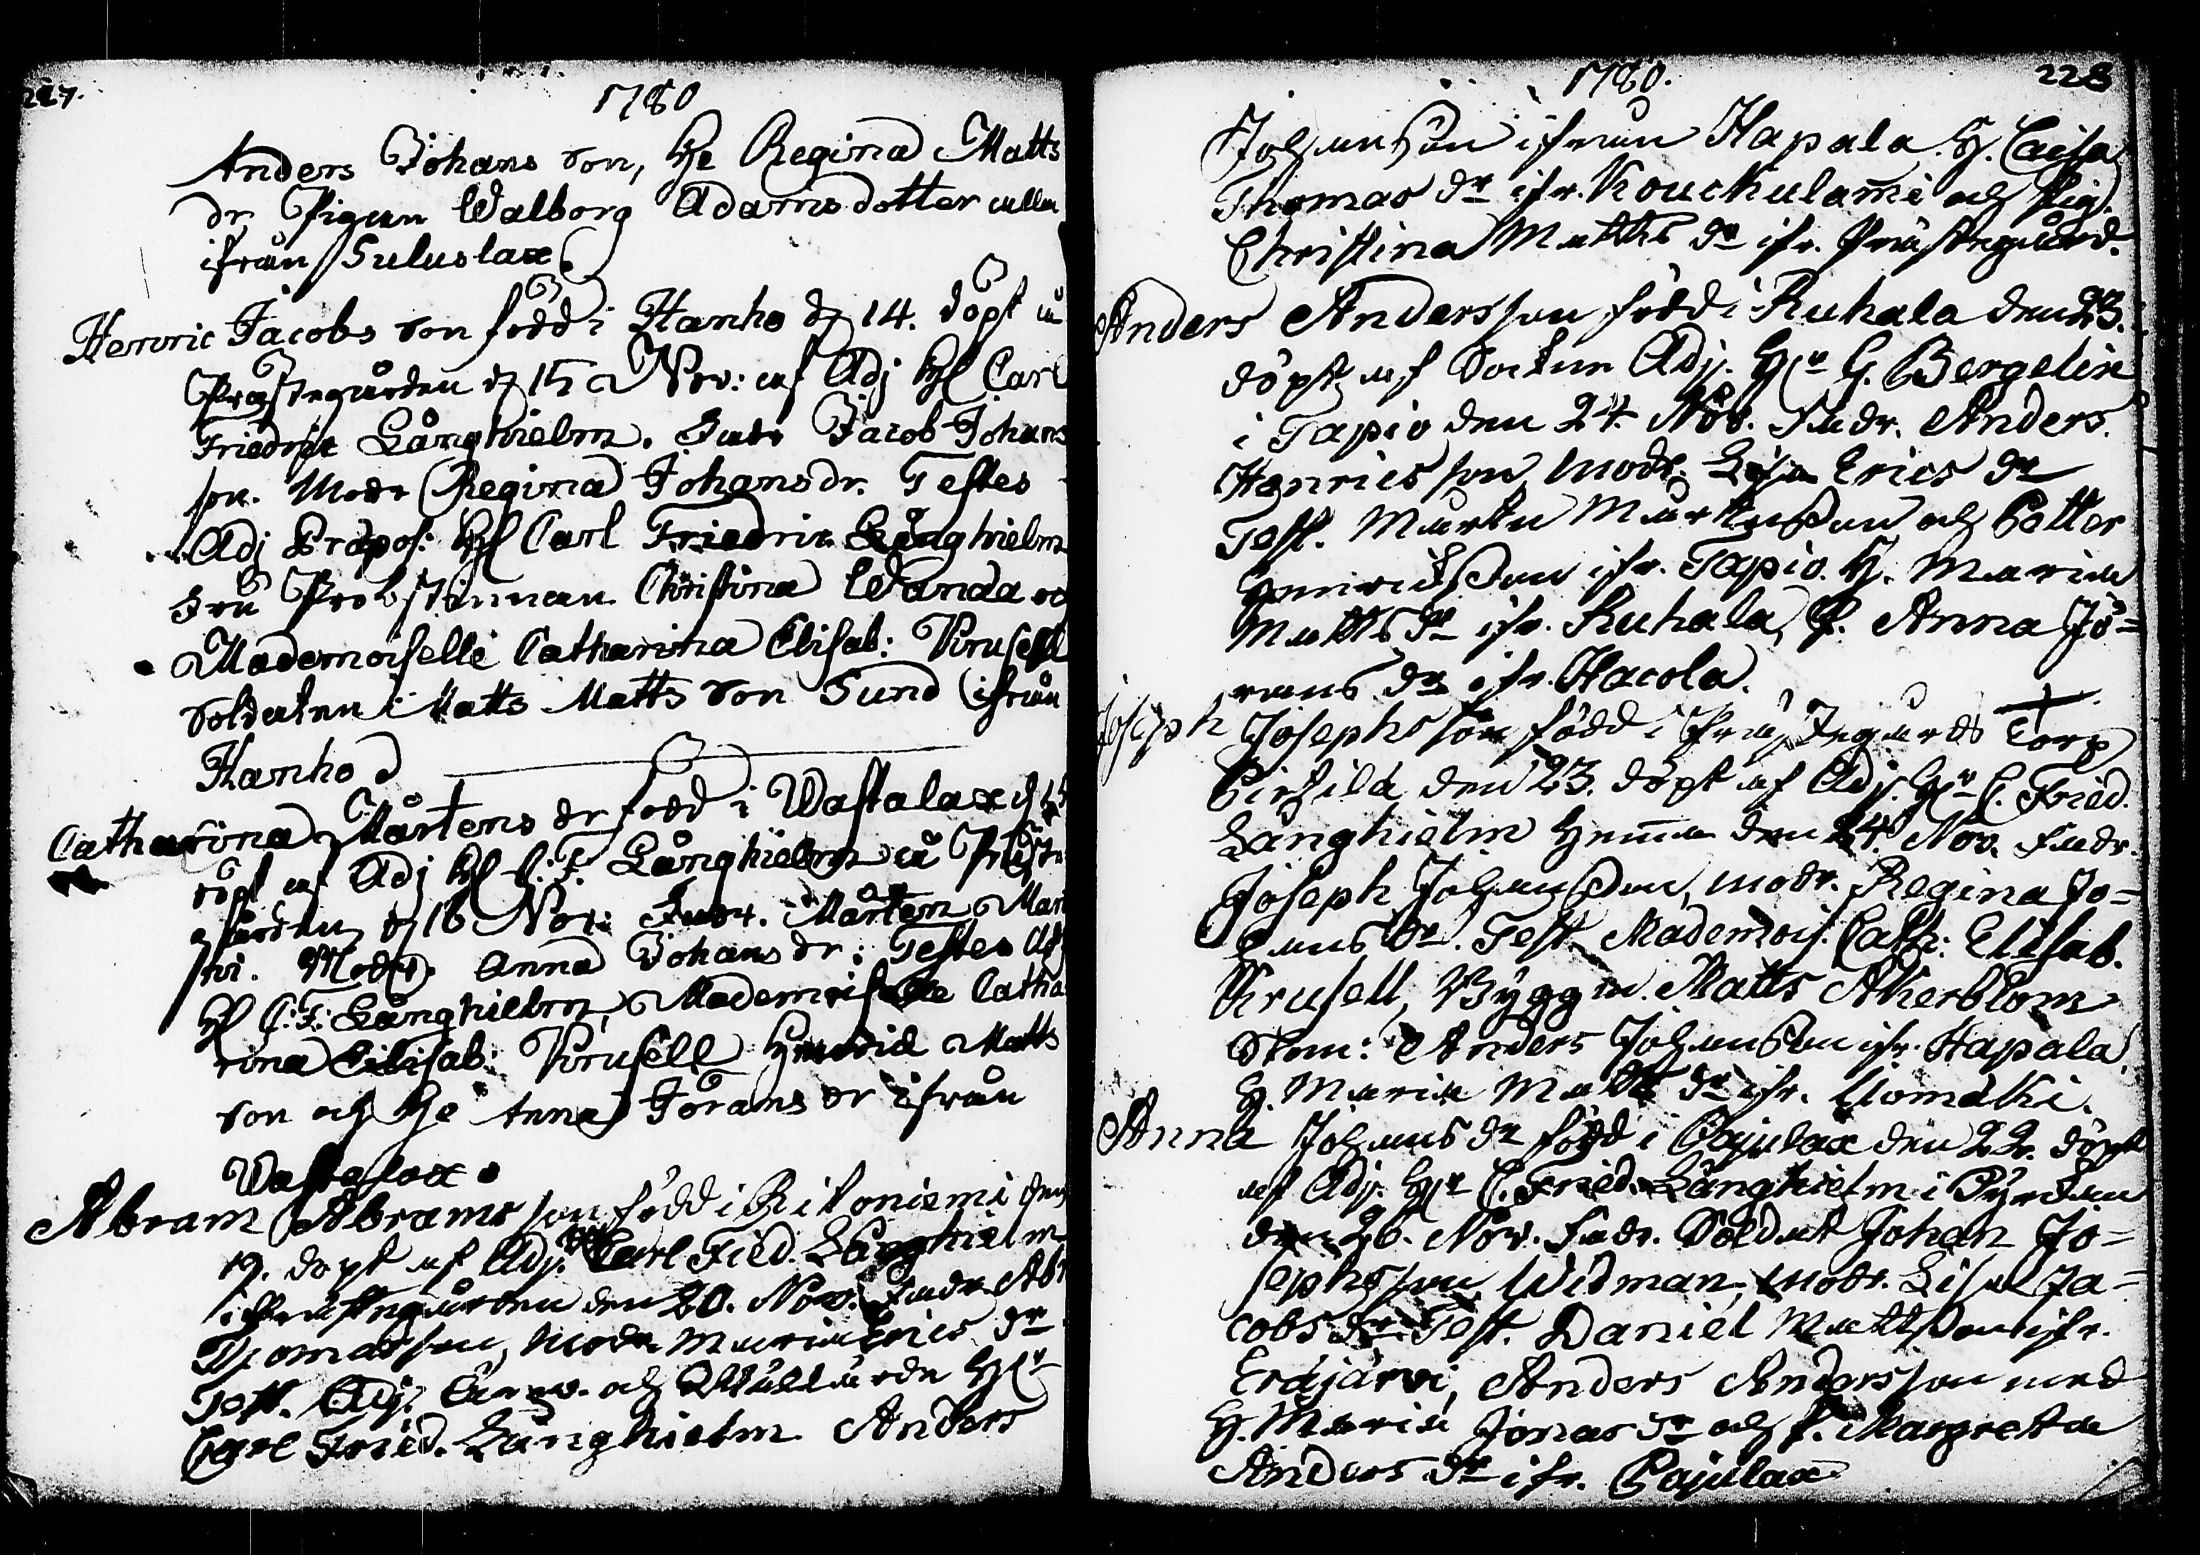 227.
1780
Anders Johans son, He Regina Matts
dr Pigan Walborg Adams dotter alla
ifrån Suluslax
Henric Jacobs son född i Hanho d 14. döpt i
Prästegården d 15 Nov: af Adj Hl Carl
Friedric Långhielm. Fadr Jacob Johans
son. Modr Regina Johansdr. Testes
Adj Præpos: Hl Carl Friedric Långhielm
Fru Probstinnan Christina Wanda oc
Mademoiselle Catharina Elisab: Krusell
Soldaten Matts Matts son Sund ifrån
Hanho
Catharina Mårtens dr född i Wastalax d
döpt af Adj Hl C: F. Långhielm i Präste
gården d 16 Nov: Fadr. Mårten Mart
son. Modr Anna Johans dr: Testes Adj
Hl C: F: Långhielm Mademoiselle Catha
rina Elisab: Krusell Henric Matts
son och He Anna Jörans dr ifrån
Wastalax
Abram Abrams son född i Ritoniemi den
19. döpt af Adj. Carl Fried. Långhielm
i Prästegården den 20. Nov. Fadr Abr
Thomasson, Modr Maria Erics dr
Test. Adj. och Hr
Carl Fried. Långhielm Anders
1780.
228
Johansson ifrån Hapala. H. Caisa
Thomas dr ifr. Kouckulami och Pig.
Christina Matts dr ifr. Prästegård.
Anders Andersson född i Ruhala den 23.
döpt af Sockne Adj. Hr G. Bergelin
i Tapio den 24. Nov. Fadr. Anders
Henricsson, Modr. Lisa Erics dr
Test. Mårten Mårtensson och Petter
Henricsson ifr. Tapio. H. Maria
Matts dr ifr. Ruhala, P. Anna Jö=
rans dr ifr. Hacola.
Joseph Josephsson född i Prästegårds Torp
Pirtilä den 23. döpt af Adj. Hr C. Fried.
Långhielm hemma den 24. Nov. Fadr.
Joseph Johansson, Modr. Regina Jo=
hans dr. Test. Mademois. Cath: Elisab.
Krusell, Byggm. Matts Åkerblom
Skom: Anders Johansson ifr. Hapala
H. Maria Matts dr ifr. Uomäki.
Anna Johans dr född i Pajulax den 22. döpt
af Adj. Hr C. Fried. Långhielm i Byrdan
den 26. Nov. Fadr. Soldat Johan Jo=
sephsson Widman, Modr. Lisa Ja=
cobs dr. Test. Daniel Mattsson ifr.
Erajärvi, Anders Andersson med
H. Maria Jonas dr och P. Margreta
Anders dr ifr. Pajulax